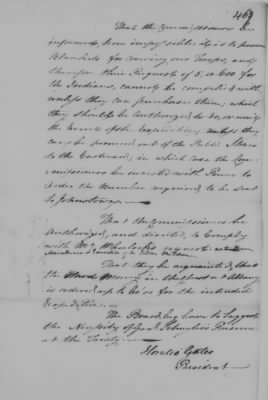 469
That the Commissioners be
informed, how impossible it is to procure
Blankets for covering our Troops, and
therefore their Requests of 5, or 600 for
the Indians, cannot be complied with
unless they can purchase them, which
they should be Authorized to do, or waiting
the Events of the Expedition, unless they
can be procured out of the Public Stores
to the Eastward; in which case the Com-
missioners be invested with Power to
order the Number required, to be sent
to Johnstown.
That the Commissioners be
Authorized, and directed, to Comply
with Mr. Wheelocks request
That they be acquainted, that
the Hard Money in
is ordered up to for the intended
Expedition.
The Board beg leave to Suggest
the Necessity of Genl. Schuylers Presence
at the Treaty.
Horatio Gates
President